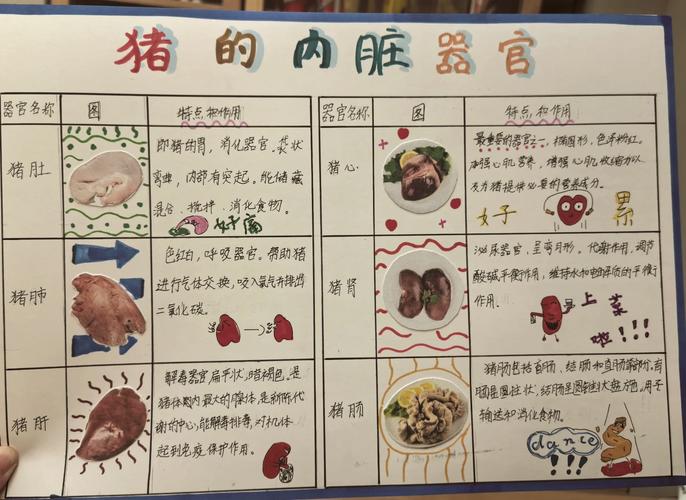 猪的内脏器官
器官名称 图 特点和作用
猪肚
即猪的胃，消化器官。袋状
弯曲，内部有突起。能储藏
混合、搅拌、消化食物。
好富
猪肺
色红白，呼吸器官。帮助猪
进行气体交换，吸入氧气并排出
二氧化碳。
猪肝
解毒器官扁平状，暗褐色。是
猪体内最大的腺体，是新陈代
谢的中心，能解毒排毒，对机体
起到免疫保护作用。
器官名称 图 特点和作用
猪心
最重要的器官之一，椭圆形，色泽粉红。
加强心肌营养，增强心肌收缩力以
及为猪提供必要的营养成分。
好 累
猪肾
泌尿器官，呈弯月形。代谢作用，调节
酸碱平衡作用，维持水和电解质的平衡
作用。
上菜
啦！！！
猪肠
猪肠包括盲肠，结肠和直肠等部分，盲
肠呈圆柱状，结肠呈圆锥状盘曲，用于
输送和消化食物。
dance
！！！